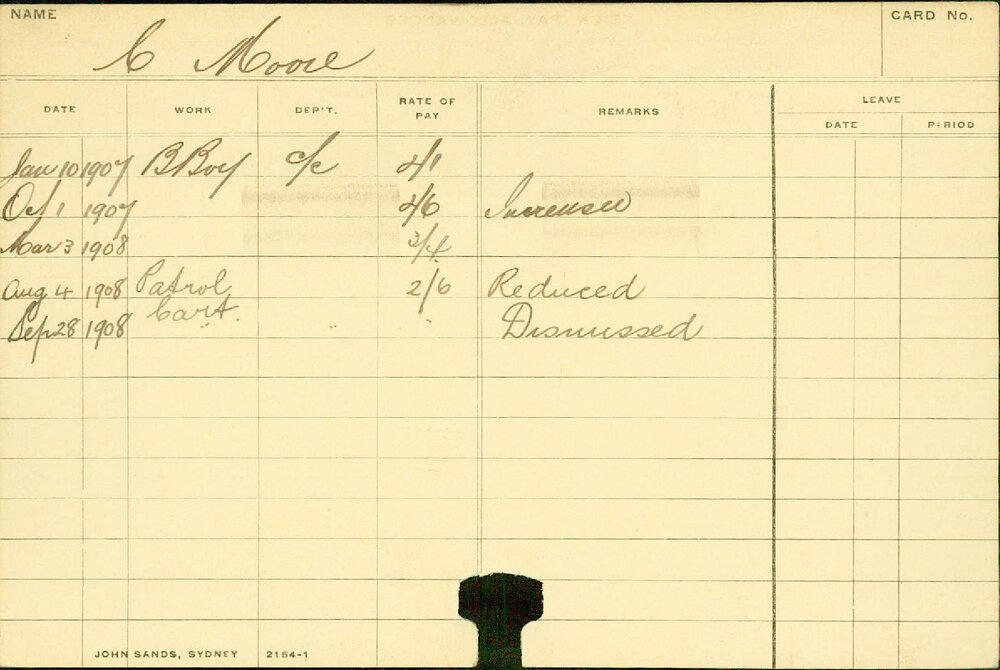 NAME
CARD No.
C Moore
DATE WORK DEP'T. RATE OF PAY REMARKS LEAVE
DATE PERIOD
Jan 10 1907 B Boy c/c
Oct 1 1907 Increased
Mar 3 1908
Aug 4 1908 Patrol 2/6 Reduced
Cart
Sep 28 1908 " " " Dismissed
JOHN SANDS, SYDNEY 2154-1